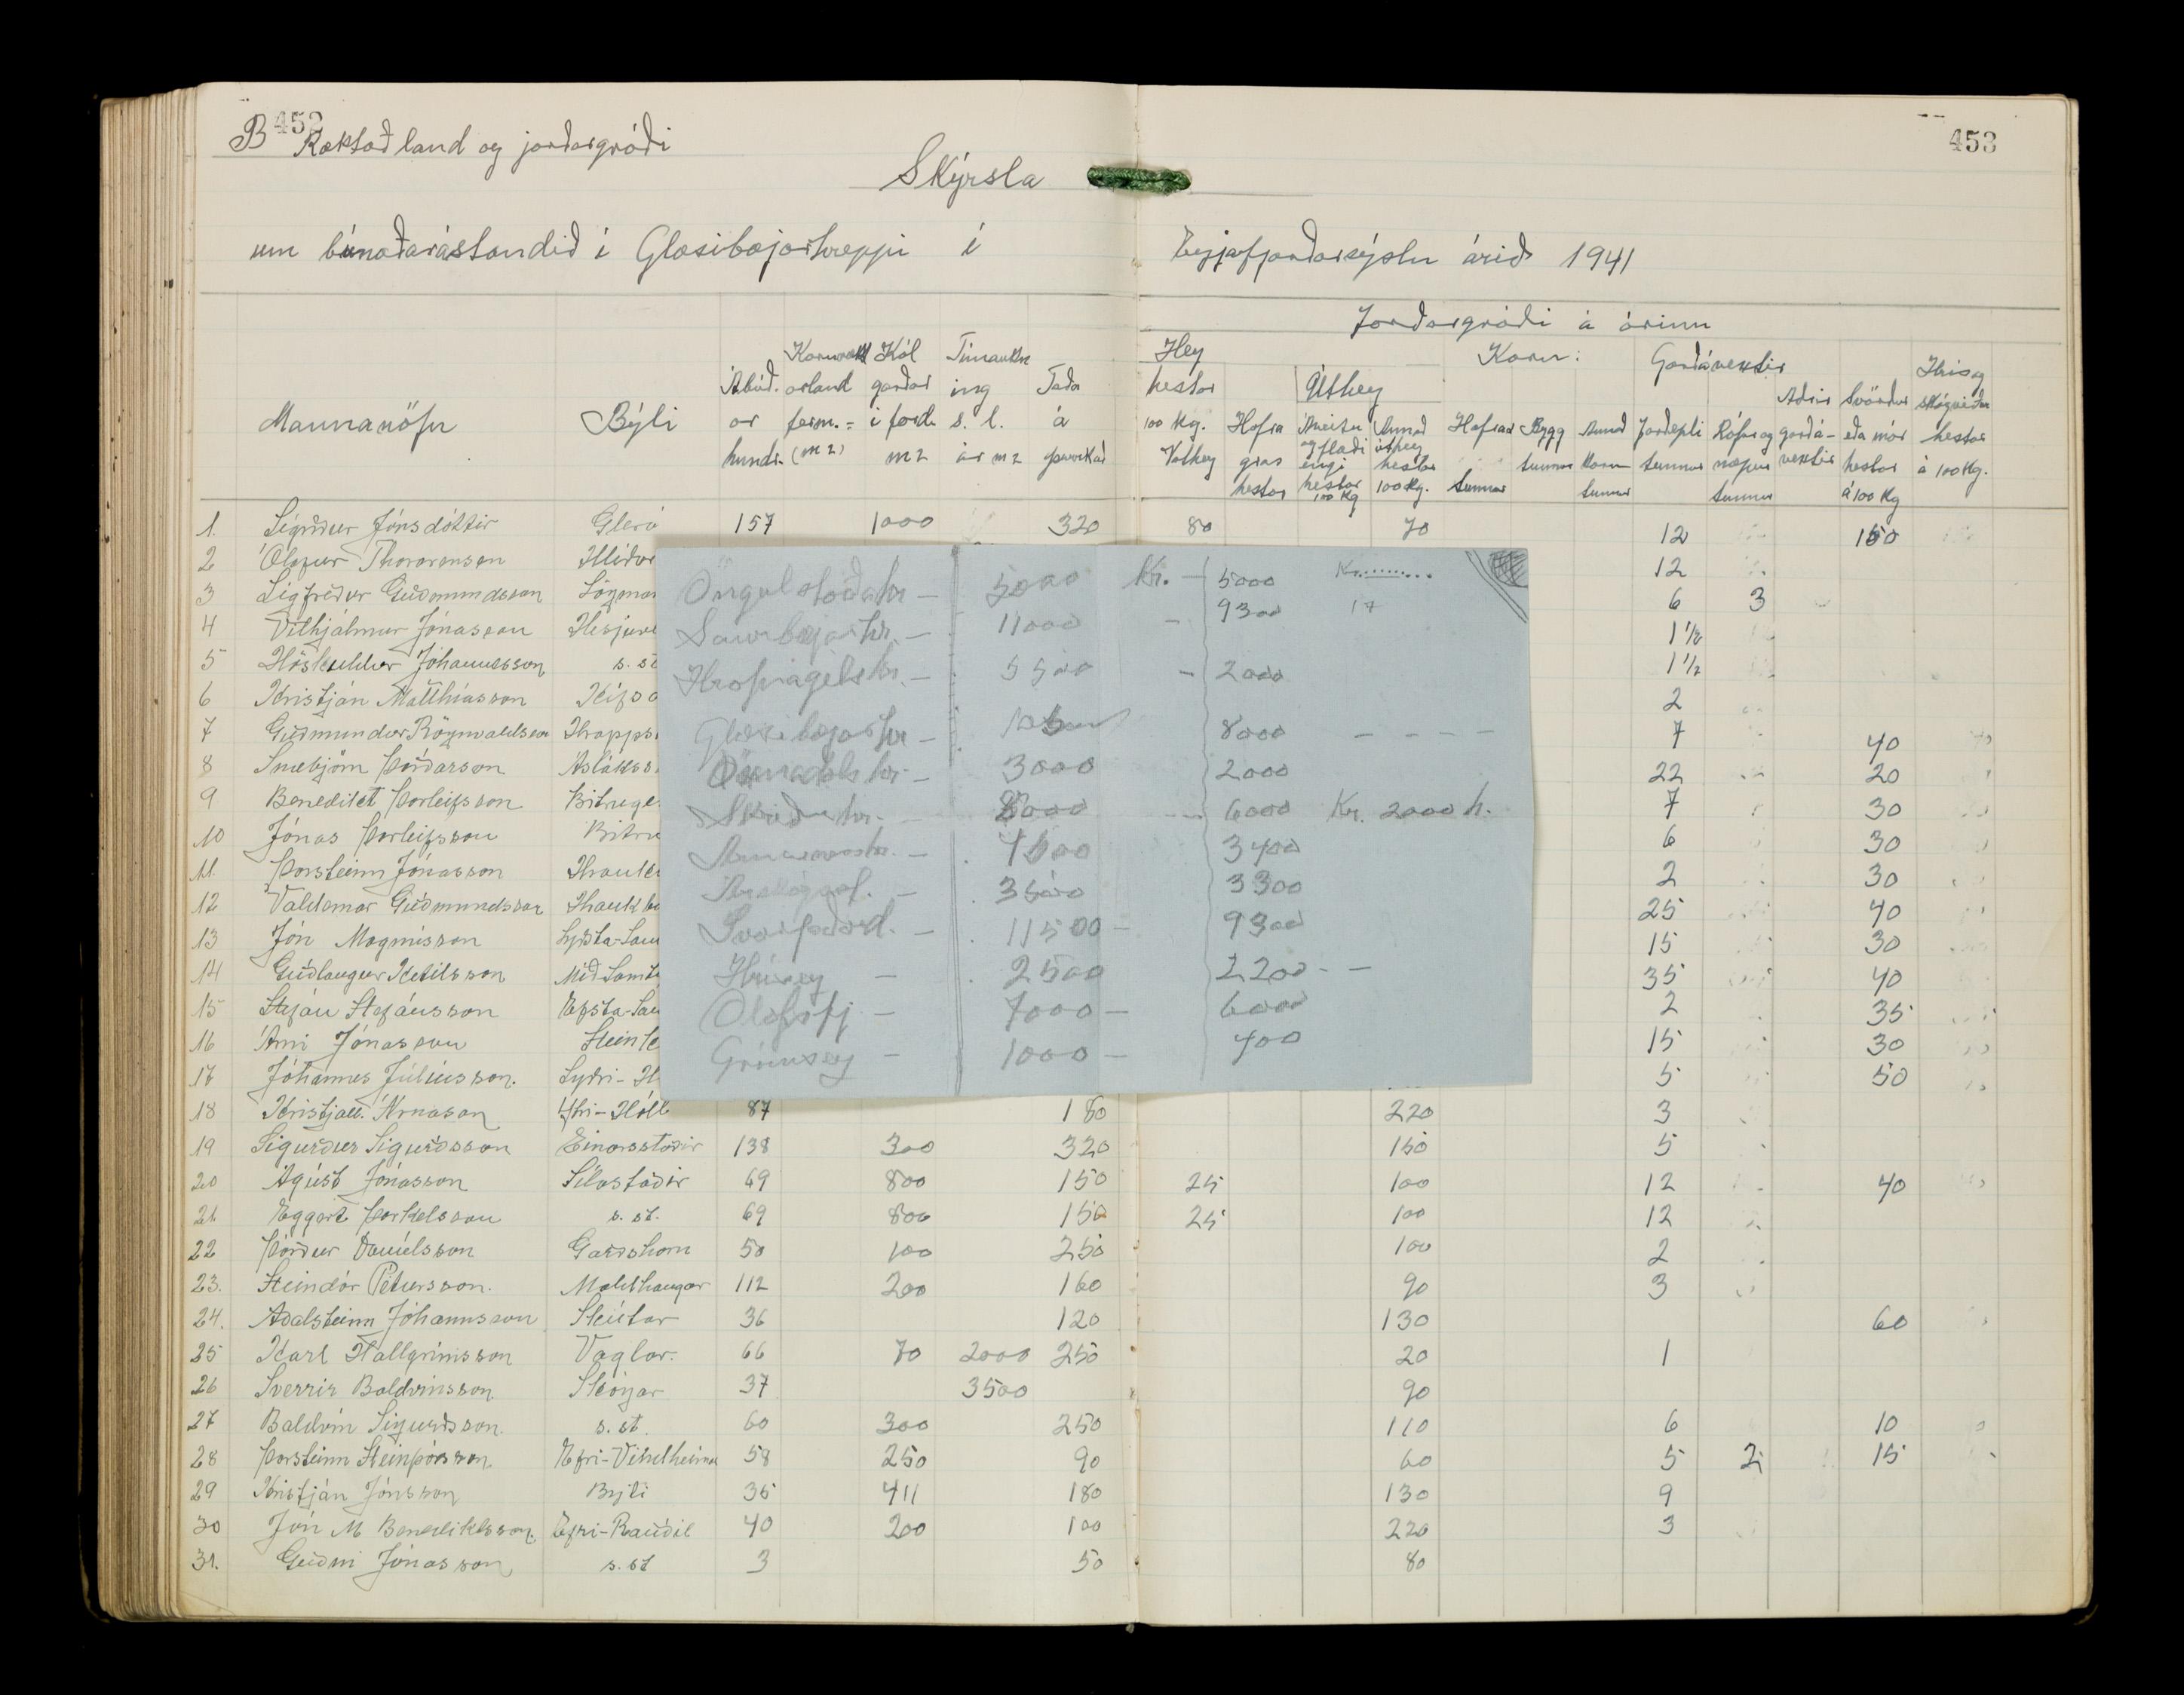 452
453
B Ræktað land og jarðargróði
Skýrsla
um búnaðarástandið í Glæsibæjarhreppi í Eyjafjarðarsýslu árið 1941
Jarðargróði á árinu
Mannanöfn Býli Ábúð. ar hundr. Kornrækt arland ferm. = (m2) Kál garðar í ford. m2 Túnaukn ing s. l. ár m2 Taða á
Hey hestar 100 kg. Vothey Hafra gras hestar Úthey Áveitu og flæði engi hestar 100 kg Annað úthey hestar 100 kg. Korn: Hafrar tunnur Bygg tunnur Annað korn tunnur Garðávextir Jarðepli tunnur Rófur og næpur tunnur Aðrir garðá- vextir Svörður eða mór hestar á 100 kg Hrís og skógviður hestar á 100 kg.
1. Sigríður Jónsdóttir Glerá 157 1000 320 80 70 12 150
2 Ólafur Thorarensen 12
3 Sigfreður Guðmundsson Lögman 6 3
4 Vilhjálmur Jónasson 1 1/2
5 Höskuldur Jóhannesson s. st 1 1/2
6 Kristján Matthíasson Kífsa 2
7 Guðmundur Rögnvaldsson Hrapps 7 40
8 Snæbjörn Þórðarson Ásláks 22 20
9 Benedikt Þorleifsson Bitruge 7 30
10 Jónas Þorleifsson Bitru 6 30
11 Þorsteinn Jónasson Hrauk 2 30
12 Valdemar Guðmundsson Hraukb 25 40
13 Jón Magnússon Syðsta-Sam 15 30
14 Guðlaugur Ketilsson Mið Samt 35 40
15 Stefán Stefánsson Efsta-Sam 2 35
16 Árni Jónasson Steink 15 30
17 Jóhannes Júlíusson. Syðri-K 5 50
18 Kristjan. Árnason Ytri-Kóll 87 180 220 3
19 Sigurður Sigurðsson Einarsstaðir 138 300 320 150 5
20 Ágúst Jónasson Sílastaðir 69 800 150 25 100 12 40
21 Eggert Þorkelsson s. st. 69 800 150 25 100 12
22 Þórður Daníelsson Garðshorn 50 100 250 100 2
23. Steindór Pétursson. Moldhaugar 112 200 160 90 3
24. Aðalsteinn Jóhannsson Skútar 36 120 130 60
25 Karl Hallgrímsson Vaglar. 66 70 2000 250 20 1
26 Sverrir Baldvinsson Skógar 37 3500 90
27 Baldvin Sigurðsson. s. st. 60 300 250 110 6 10
28 Þorsteinn Steinþórsson. Efri-Vindheimar 58 250 90 60 5 2 15
29 Kristján Jónsson Býti 35 411 180 130 9
30 Jón M Benediktsson Efri-Rauðil 40 200 100 220 3
31. Guðni Jónasson s. st 3 50 80
Öngulstaðahr — 5000 Kr. — 5000 Kr..........
Saurbæjarhr. — 11000 — 9300 17
Hrafnagilshr. — 5500 — 2000
Glæsibæjarhr — 8000 — — — —
Öxnadalshr. — 3000 2000
Skriðuhr. — 8000 6000 Kr. 2000 h.
Arnarneshr. — 7500 3400
3500 3300
Svarfaðard. — 11500 — 9300
Hrísey — 2500 2200 - —
Ólafsfj — 7000 — 6000
Grímsey — 1000 — 400